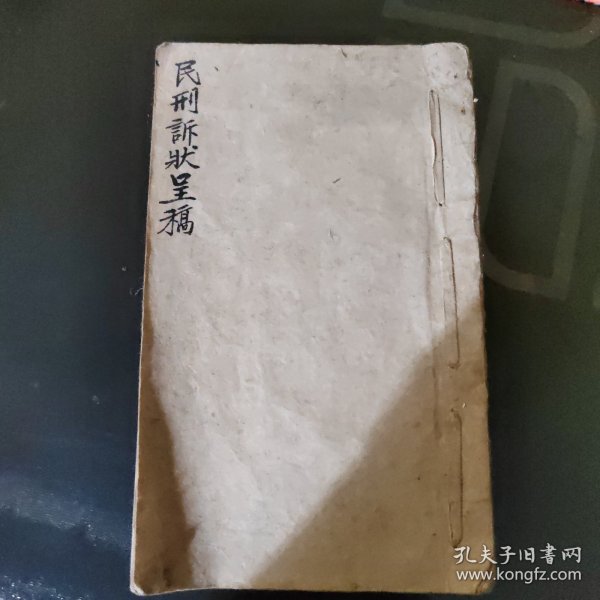 民刑訴狀呈稿
孔夫子旧書网
www.kongfz.com